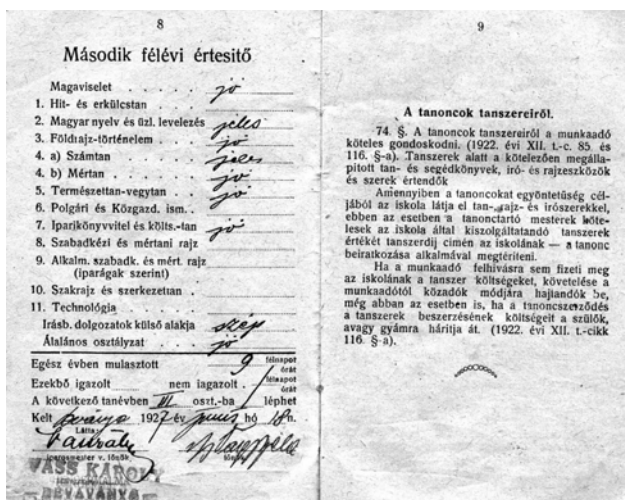 8
Második félévi értesitő
Magaviselet . . . . . jó
1. Hit- és erkülcstan
2. Magyar nyelv és üzl. levelezés jeles
3. Földrajz-történelem . . jó
4. a) Számtan . . . . . jeles
4. b) Mértan . . . . . jó
5. Természettan-vegytan . . jó
6. Polgári és Közgazd. ism. .
7. Iparikönyvvitel és költs.-tan jó
8. Szabadkézi és mértani rajz
9. Alkalm. szabadk. és mért. rajz
(iparágak szerint)
10. Szakrajz és szerkezettan .
11. Technológia . . . . .
Irásb. dolgozatok külső alakja szép
Általános osztályzat . . jó
Egész évben mulasztott 9 félnapot
órát
Ezekbő igazolt nem iagazolt . félnapot
órát
A következő tanévben III oszt.-ba léphet
Kelt 1927 év junius hó 18 n.
Látta:
ipargmester v. tőnök.
VASS KÁROLY
DÉVAVÁNYA
9
A tanoncok tanszereiről.
74. §. A tanoncok tanszereiről a munkaadó
köteles gondoskodni. (1922. évi XII. t.-c. 85. és
116. §-a). Tanszerek alatt a kötelezően megálla-
pitott tan- és segédkönyvek, iró- és rajzeszközök
és szerek értendők
Amennyiben a tanoncokat egyöntetűség cél-
jából az iskola látja el tan-, rajz- és irószerekkel,
ebben az esetben a tanonctartó mesterek köte-
lesek az iskola által kiszolgáltatandó tanszerek
értékét tanszerdij cimén az iskolának — a tanonc
beiratkozása alkalmával megtériteni.
Ha a munkaadó felhivásra sem fizeti meg
az iskolának a tanszer költségeket, követelése a
munkaadótól közadók módjára hajtandók be,
még abban az esetben is, ha a tanoncszerződés
a tanszerek beszerzésének költségeit a szülők,
avagy gyámra háritja át. (1922. évi XII. t.-cikk
116. §-a).